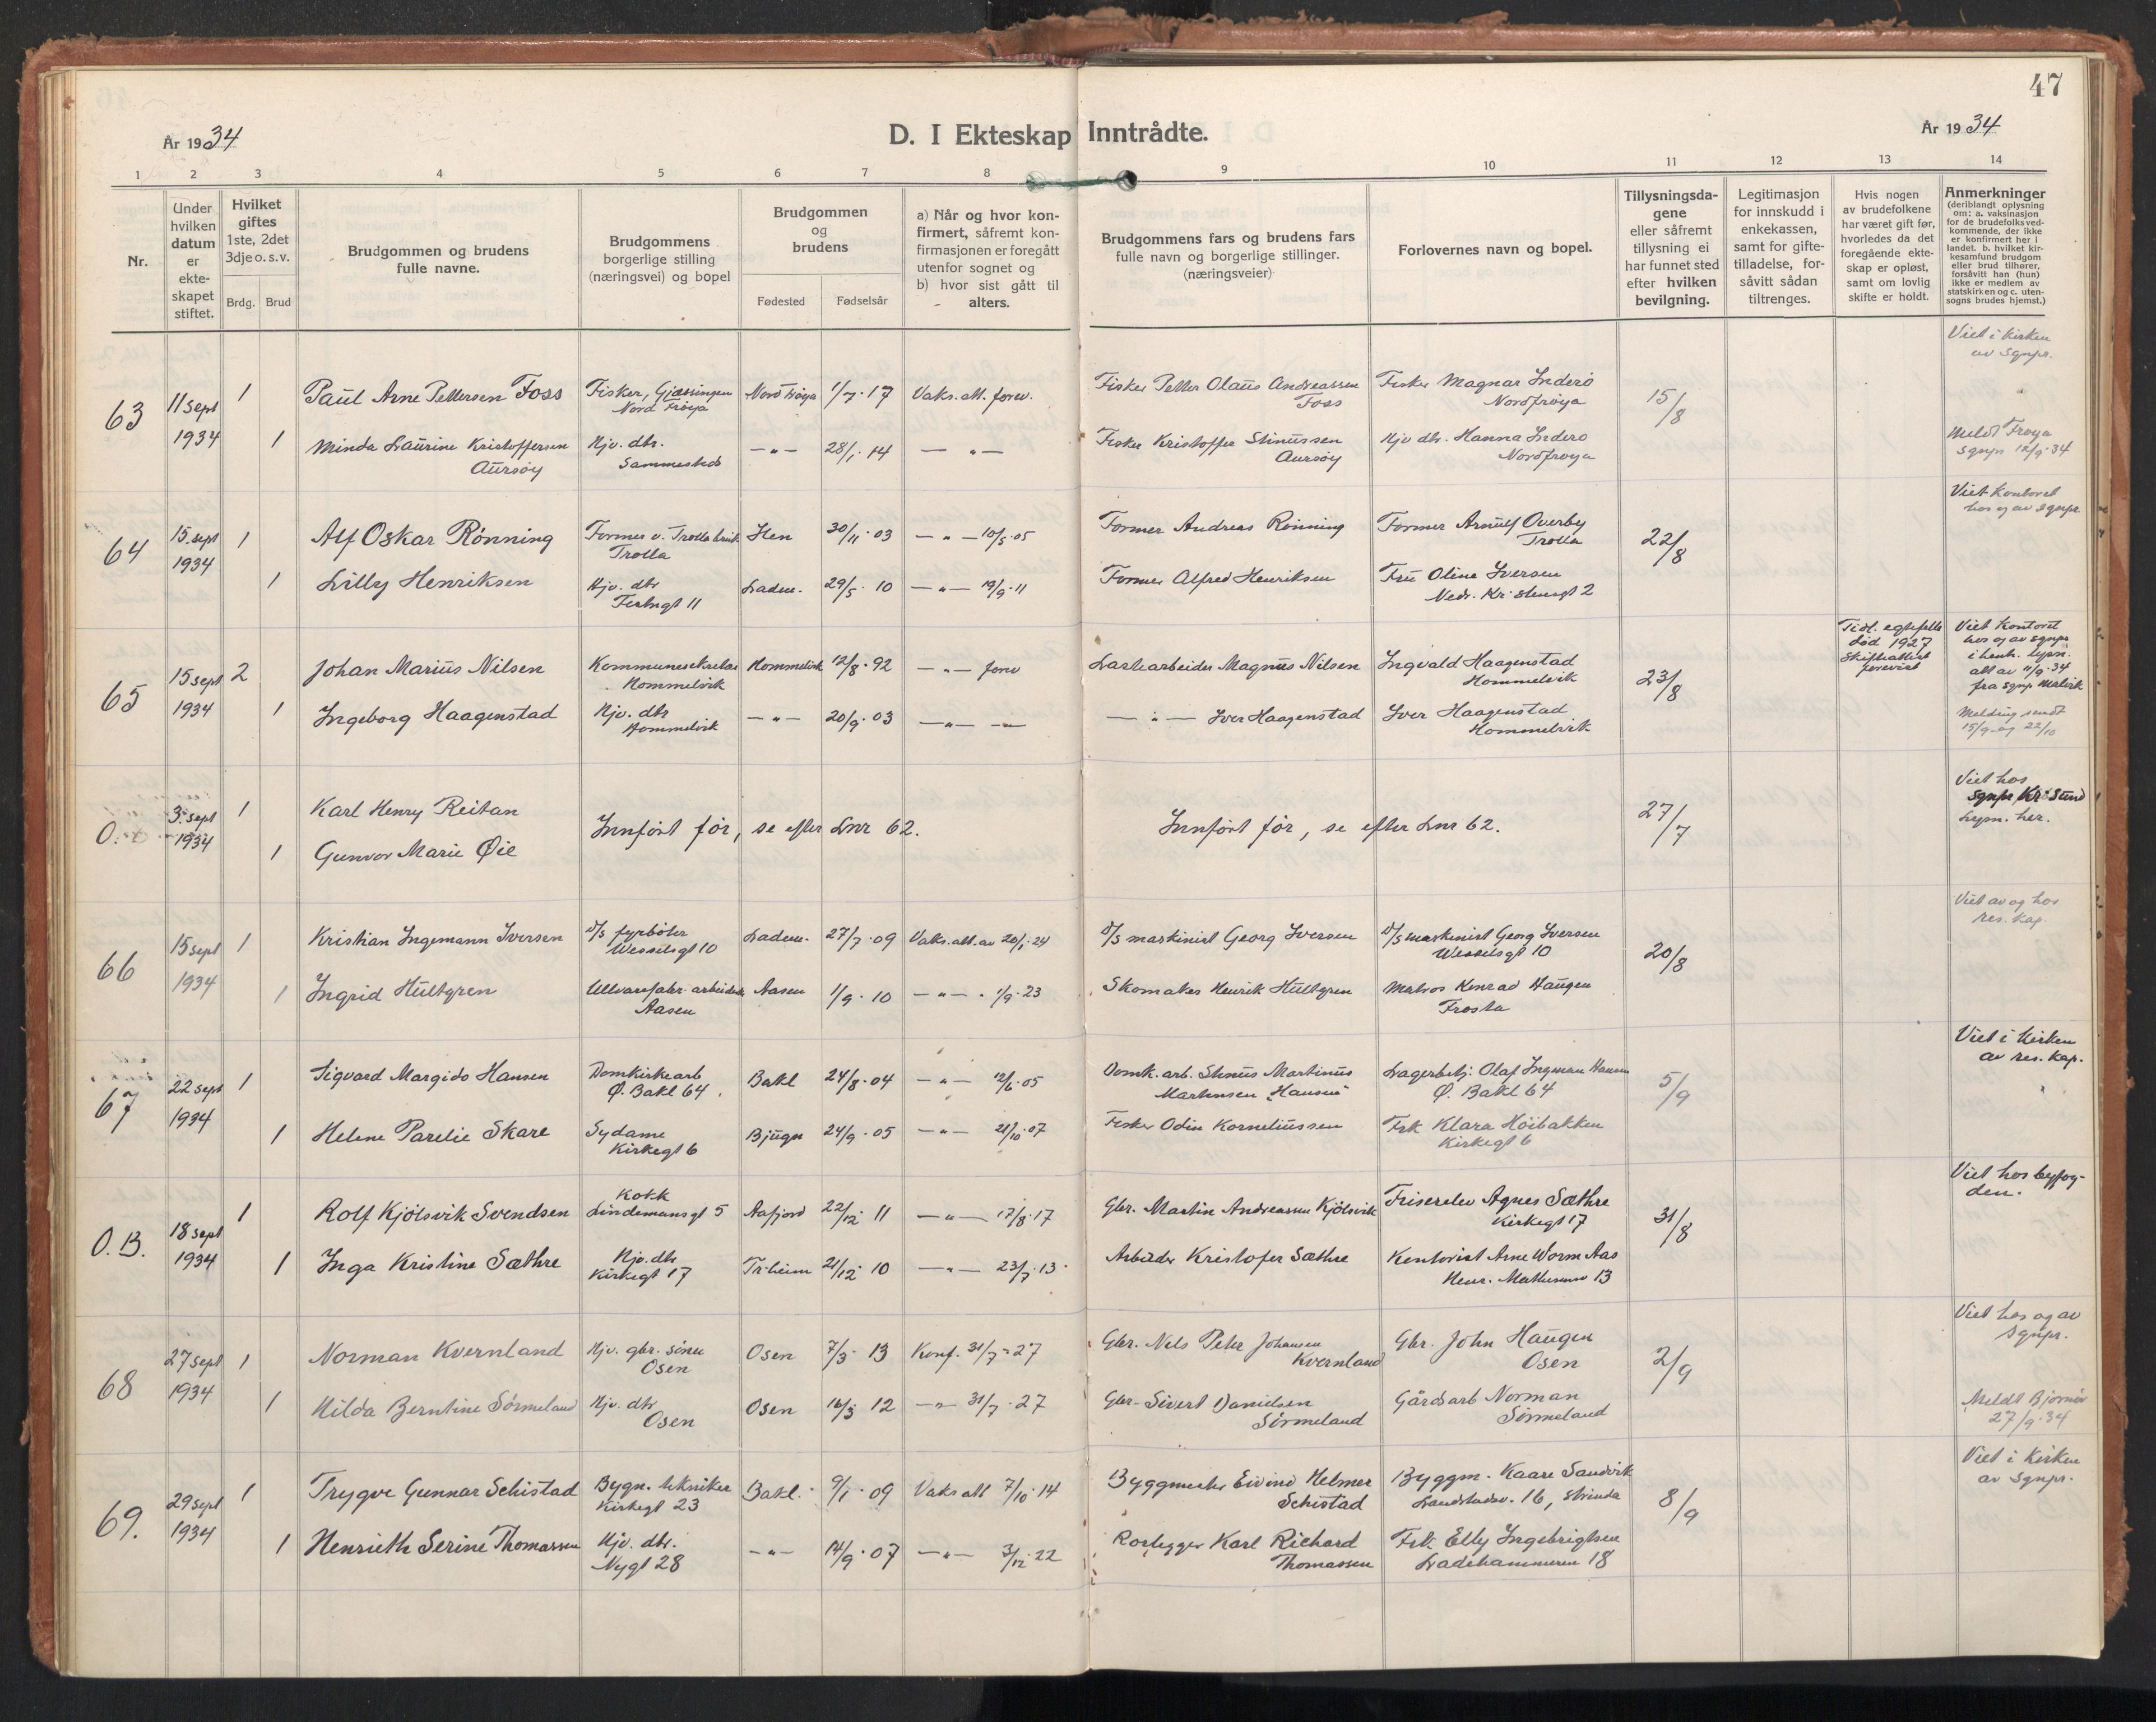 47
År 1934
D. I Ekteskap Inntrådte.
År 1934
1 2 3 4 5 6 7 8 9 10 11 12 13 14
Nr.
Under hvilken datum er ekte-skapet stiftet.
Hvilket giftes
1ste, 2det
3dje o. s. v.
Brdg. Brud
Brudgommen og brudens
fulle navne.
Brudgommens
borgerlige stilling
(næringsvei) og bopel
Brudgommen
og
brudens
Fødested Fødselsår
a) Når og hvor kon-
firmert, såfremt kon-
firmasjonen er foregått
utenfor sognet og
b) hvor sist gått til
alters.
Brudgommens fars og brudens fars
fulle navn og borgerlige stillinger.
(næringsveier)
Forlovernes navn og bopel.
Tillysningsda-
gene
eller såfremt
tillysning ei
har funnet sted
efter hvilken
bevilgning.
Legitimasjon
for innskudd i
enkekassen,
samt for gifte-
tilladelse, for-
såvitt sådan
tiltrenges.
Hvis nogen
av brudefolkene
har været gift før,
hvorledes da det
foregående ekte-
skap er opløst,
samt om lovlig
skifte er holdt.
Anmerkninger
(deriblandt oplysning
om: a. vaksinasjon
for de brudefolksved-
kommende, der ikke
er konfirmert her i
landet. b. hvilket kir-
kesamfund brudgom
eller brud tilhører,
forsåvitt han (hun)
ikke er medlem av
statskirken og c. uten-
sogns brudes hjemst.)
63 11 sept 1 Paul Arne Pettersen Foss Fisker, Gjæsingen Nord Frøya Nord Frøya 1/7 17 Vaks. att. forev. Fisker Petter Olaus Andreassen Foss Fisker Magnar Inderø Nordfrøya 15/8 Viet i kirken av sgnpr.
1934 1 Minda Laurine Kristoffersen Aursøy Hjv. dtr. Sammesteds —"— 28/1 14 —"— Fisker Kristoffer Stinussen Aursøy Hjv dtr. Hanna Inderø Nordfrøya Meldt Frøya sgnpr 12/9 34
64 15. sept 1 Alf Oskar Rønning Former v. Trolla bruk Trolla Hen 30/11 03 —"— 10/5 05 Former Andreas Rønning Former Arnulf Overby Trolla 22/8 Viet kontoret hos og av sgnpr
1934 1 Lilly Henriksen Hjv. dtr Ladem. 29/5 10 —"— 19/9 11 Former Alfred Henriksen Fru Oline Iversen Nedr. Kr. stensgt 2
65 15 sept 2 Johan Marius Nilsen Kommunesekretær Hommelvik Hommelvik 12/8 92 —"— forev Lastearbeider Magnus Nilsen Ingvald Haagenstad Hommelvik 23/8 Tidl. egtefelle død 1927 Skifteattest forevist Viet kontoret hos og av sgnpr i henh. lysn. att av 11/9 34 fra sgnpr Malvik
1934 1 Ingeborg Haagenstad Hjv. dtr Hommelvik —"— 20/9 03 —"— —"— —"— Iver Haagenstad Iver Haagenstad Hommelvik Melding sendt 15/9 og 22/10
O. 3. sept 1 Karl Henry Reitan Innført før, se efter Lnr 62. Innført før, se efter Lnr 62. 27/7 Viet hos sgnpr Kr. Sund lysn. her.
1934 1 Gunvor Marie Øie
66 15 sept 1 Kristian Ingemann Iversen D/S fyrbøter Wesselsgt 10 Ladem. 27/7 09 Vaks. att. av 20/1 24 D/S maskinist Georg Iversen D/S maskinist Georg Iversen Wesselsgt 10 20/8 Viet av og hos res. kap.
1934 1 Ingrid Hultgren Ullvarefabr. arbeider Aasen Aasen 1/9 10 —"— 1/9 23 Skomaker Henrik Hultgren Matros Konrad Haugen Frosta
67 22 sept 1 Sigvard Margido Hansen Domkirkearb Ø. Bakl 64 Bakl 24/8 04 —"— 12/6 05 Domk. arb. Stinus Martinus Martinsen "Hansen" Lagerbetj. Olaf Ingman Hansen Ø. Bakl 64 5/9 Viet i kirken av res. kap.
1934 1 Helene Parelie Skare Sydame Kirkegt 6 Bjugn 24/9 05 —"— 21/10 07 Fisker Odin Korneliussen Frk Klara Høibakken Kirkegt 6
O. B. 18 sept 1 Rolf Kjølsvik Svendsen Kokk Lindemansgt 5 Aafjord 22/12 11 —"— 17/8 17 Gbr. Martin Andreassen Kjølsvik Friserelev Agnes Sæthre Kirkegt 17 31/8 Viet hos byfog-den.
1934 1 Inga Kristine Sæthre Hjv. dtr Kirkegt 17 Tr.heim 21/12 10 —"— 23/7 13 Arbeider Kristofer Sæthre Kontorist Arne Worm Aas 13
68 27 sept 1 Norman Kvernland Hjv. gbr. sønn Osen Osen 7/3 13 Konf. 31/7 27 Gbr. Nels Peter Johansen Kvernland Gbr. John Haugen Osen 2/9 Viet hos og av sgnpr.
1934 1 Hilda Berntine Sørmeland Hjv. dtr Osen Osen 16/3 12 —"— 31/7 27 Gbr. Sivert Danielsen Sørmeland Gårdsarb Norman Sørmeland Meldt Bjørnør 27/9 34
69. 29 sept 1 Trygve Gunnar Schistad Bygn. tekniker Kirkegt 23 Bakl. 9/1 09 Vaks att 7/10 14 Byggmester Eivind Helmer Schistad Byggm. Kaare Sandvik Landstadsv. 16, Strinda 8/9 Viet i kirken av sgnpr.
1934 1 Henrieth Serine Thomassen Hjv. dtr. Nygt 28 —"— 14/9 07 —"— 3/12 22 Rørlegger Karl Richard Thomassen Frk. Elly Ingebrigtsen Ladehammeren 18